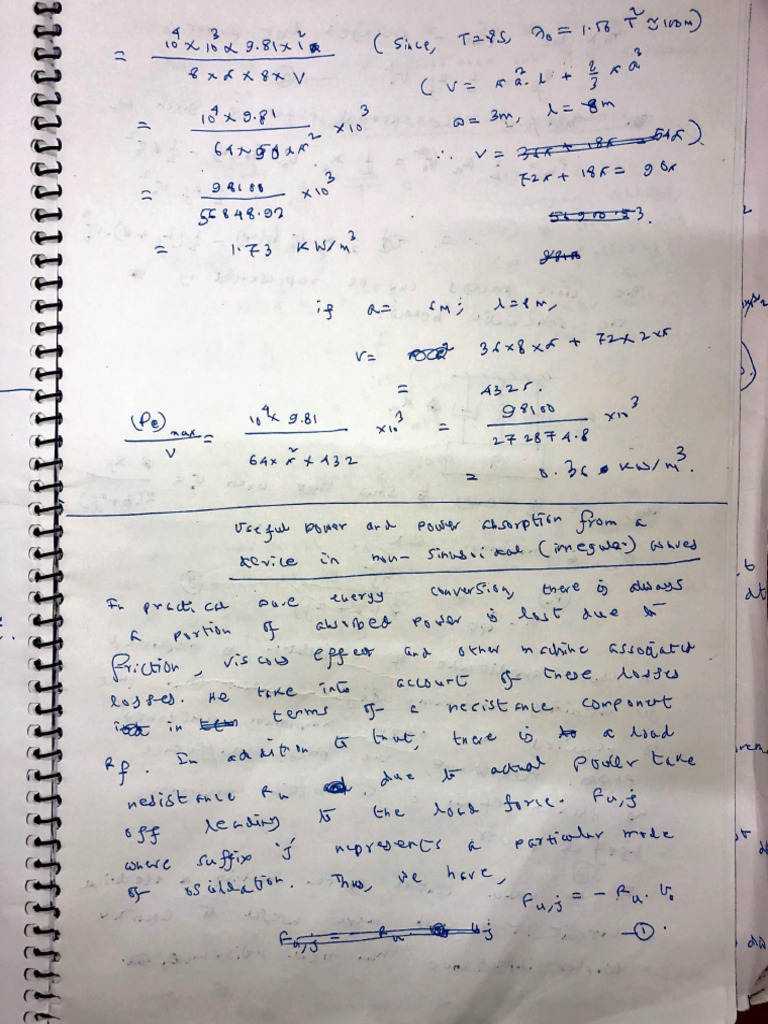 = 10^4 x 10^3 x 9.81 x 1^2 / 8 x π x 8 x V (Since, T=8s, λ0 = 1.56 T^2 ≈ 100m)
(V = π a^2. l + 2/3 π a^3
= 10^4 x 9.81 / 64 x 90 x π^2 x10^3 a = 3m, l = 8m
∴ V = 72π + 18π = 90π
= 98100 / 56848.92 x10^3
= 1.73 KW/m^3
if a = 6m; l = 8m,
V = 36x8xπ + 72x2xπ
= 432π.
(Pe)max / V = 10^4 x 9.81 / 64 x π^2 x 432 x10^3 = 98100 / 272874.8 x10^3
= 0.36 KW/m^3.
Useful power and power absorption from a
device in non-sinusoidal (irregular) waves
In practical wave energy conversion, there is always
a portion of absorbed power is lost due to
friction, viscous effect and other machine associated
losses. We take into account of these losses
in terms of a resistance component
Rf. In addition to that, there is a load
resistance Ru due to actual power take
off leading to the load force. Fu,j
where suffix 'j' represents a particular mode
of oscillation. Thus, we have,
Fu,j = - Ru. Uo
—①.